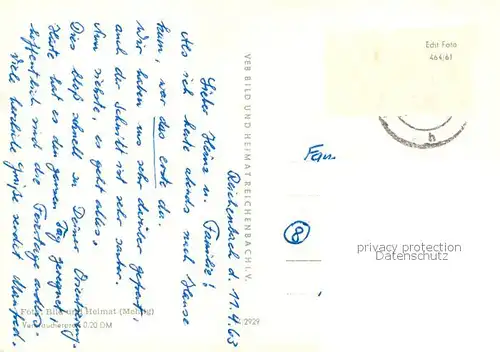 Reichenbach d. 11.4.63
Lieber Heinz u. Familie!
Als ich heute abends nach Hause
kam, war das erste da.
Wir haben uns sehr darüber gefreut,
auch der Schnitt ist sehr sauber.
Nun siehste, es geht alles.
Dies bloß schnell zu Deiner Orientierung.
Heute hat es den ganzen Tag geregnet,
hoffentlich sind die Feiertage anders.
Viele herzliche Grüße sendet Manfred.
VEB BILD UND HEIMAT REICHENBACH I. V.
Foto: Bild und Heimat (Mehlig)
Verbraucherpreis 0,20 DM
2929
Edit Foto
464/61
h
Fam.
8
privacy protection
Datenschutz